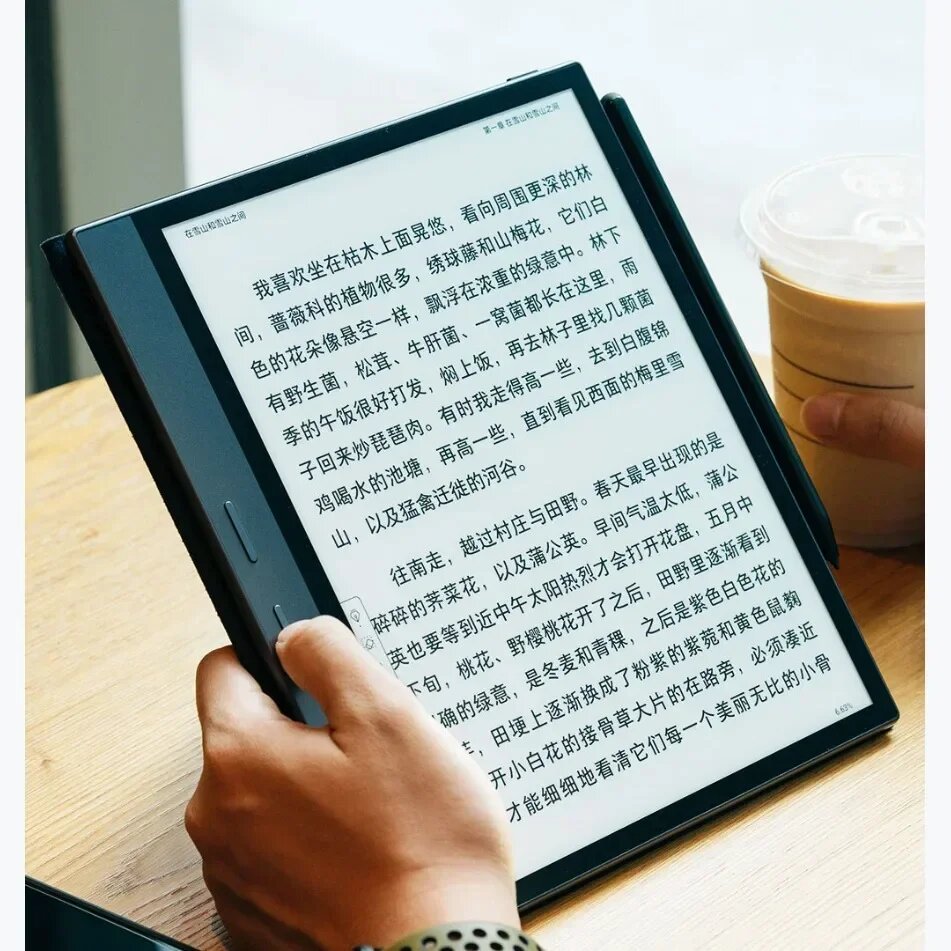 在雪山和雪山之间
第一章 在雪山和雪山之间
我喜欢坐在枯木上面晃悠，看向周围更深的林
间，蔷薇科的植物很多，绣球藤和山梅花，它们白
色的花朵像悬空一样，飘浮在浓重的绿意中。林下
有野生菌，松茸、牛肝菌、一窝菌都长在这里，雨
季的午饭很好打发，焖上饭，再去林子里找几颗菌
子回来炒琵琶肉。有时我走得高一些，去到白腹锦
鸡喝水的池塘，再高一些，直到看见西面的梅里雪
山，以及猛禽迁徙的河谷。
往南走，越过村庄与田野。春天最早出现的是
碎碎的荠菜花，以及蒲公英。早间气温太低，蒲公
英也要等到近中午太阳热烈才会打开花盘，五月中
下旬，桃花、野樱桃花开了之后，田野里逐渐看到
确的绿意，是冬麦和青稞，之后是紫色白色花的
，田埂上逐渐换成了粉紫的紫菀和黄色鼠麴
开小白花的接骨草大片的在路旁，必须凑近
才能细细地看清它们每一个美丽无比的小骨
6.63%